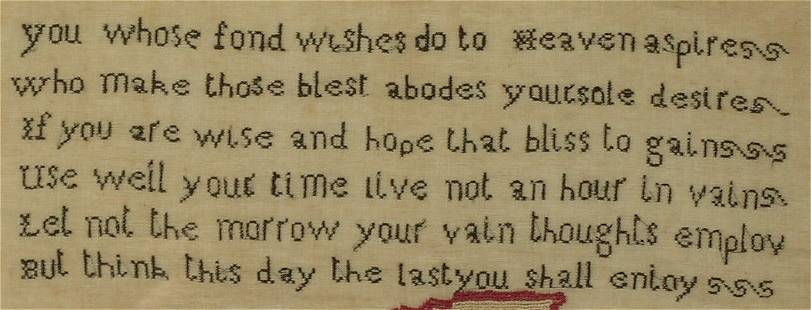 you whose fond wishes do to Heaven aspire
who make those blest abodes your sole desire
If you are wise and hope that bliss to gain
Use well your time live not an hour in vain
Let not the morrow your vain thoughts employ
But think this day the last you shall enjoy